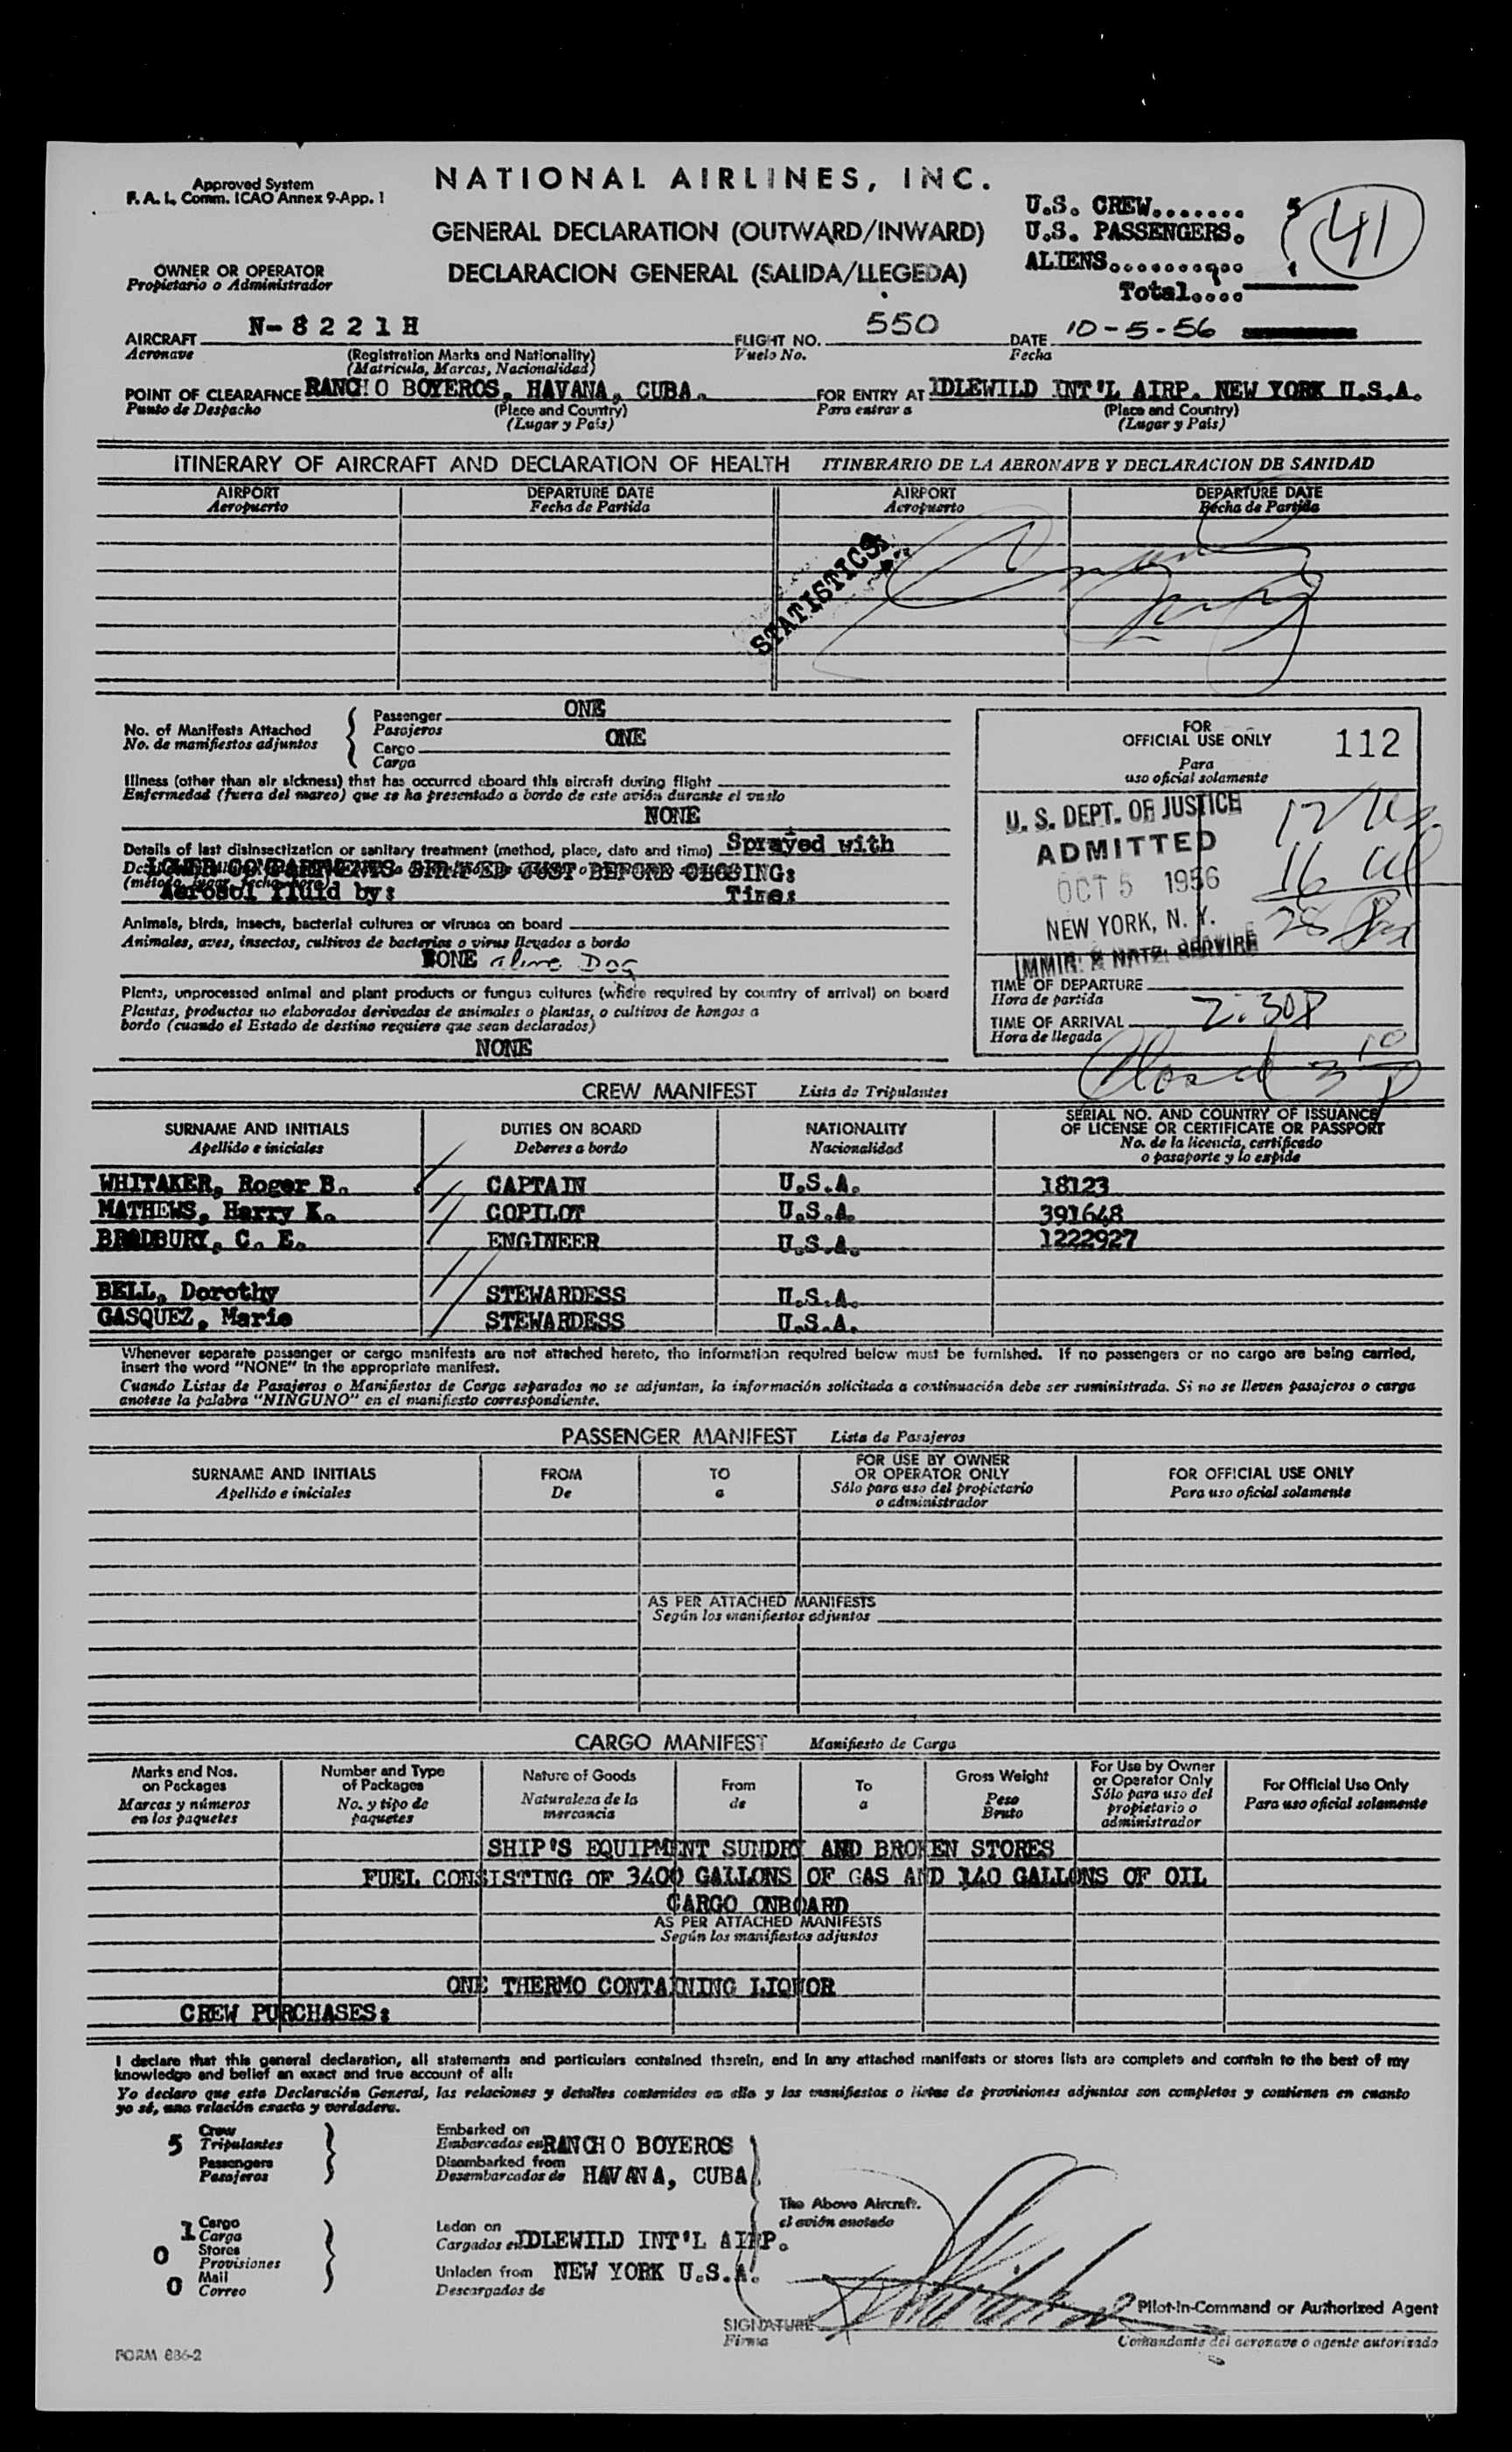 Approved System
F. A. I. Comm. ICAO Annex 9-App. 1
NATIONAL AIRLINES, INC.
GENERAL DECLARATION (OUTWARD/INWARD)
DECLARACION GENERAL (SALIDA/LLEGEDA)
U.S. CREW....... 5
U.S. PASSENGERS.
ALIENS..........
Total....
41
OWNER OR OPERATOR
Propietario o Administrador
AIRCRAFT N-8221H FLIGHT NO. 550 DATE 10-5-56
Acronave (Registration Marks and Nationality) Vuelo No. Fecha
(Matricula, Marcas, Nacionalidad)
POINT OF CLEARAFNCE RANCHO BOYEROS, HAVANA, CUBA. FOR ENTRY AT IDLEWILD INT'L AIRP. NEW YORK U.S.A.
Punto de Despacho (Place and Country) Para entrar a (Place and Country)
(Lugar y País) (Lugar y País)
ITINERARY OF AIRCRAFT AND DECLARATION OF HEALTH ITINERARIO DE LA AERONAVE Y DECLARACION DE SANIDAD
AIRPORT DEPARTURE DATE AIRPORT DEPARTURE DATE
Aeropuerto Fecha de Partida Aeropuerto Fecha de Partida
STATISTICS
No. of Manifests Attached Passenger ONE
No. de manifiestos adjuntos Pasajeros
Cargo ONE
Carga
Illness (other than air sickness) that has occurred aboard this aircraft during flight
Enfermedad (fuera del mareo) que se ha presentado a bordo de este avión durante el vuelo
NONE
Details of last disinsectization or sanitary treatment (method, place, date and time) Sprayed with
LOWER COMPARTMENTS SPRAYED JUST BEFORE CLOSING:
Aerosol fluid by: Time:
Animals, birds, insects, bacterial cultures or viruses on board
Animales, aves, insectos, cultivos de bacterias o virus llevados a bordo
NONE alive Dog
Plants, unprocessed animal and plant products or fungus cultures (where required by country of arrival) on board
Plantas, productos no elaborados derivados de animales o plantas, o cultivos de hongos a
bordo (cuando el Estado de destino requiera que sean declarados)
NONE
FOR
OFFICIAL USE ONLY 112
Para
uso oficial solamente
U. S. DEPT. OF JUSTICE
ADMITTED
OCT 5 1956
NEW YORK, N. Y.
IMMIG. & NATZ. SERVICE
17 us
16 al
28
TIME OF DEPARTURE
Hora de partida
TIME OF ARRIVAL 2:30P
Hora de llegada
Closed 3 10 P
CREW MANIFEST Lista de Tripulantes
SURNAME AND INITIALS DUTIES ON BOARD NATIONALITY SERIAL NO. AND COUNTRY OF ISSUANCE
OF LICENSE OR CERTIFICATE OR PASSPORT
Apellido e iniciales Deberes a bordo Nacionalidad No. de la licencia, certificado
o pasaporte y lo expide
WHITAKER, Roger B. CAPTAIN U.S.A. 18123
MATHEWS, Harry K. COPILOT U.S.A. 391648
BRADBURY, C. E. ENGINEER U.S.A. 1222927
BELL, Dorothy STEWARDESS U.S.A.
GASQUEZ, Marie STEWARDESS U.S.A.
Whenever separate passenger or cargo manifests are not attached hereto, the information required below must be furnished. If no passengers or no cargo are being carried,
insert the word "NONE" in the appropriate manifest.
Cuando Listas de Pasajeros o Manifiestos de Carga separados no se adjuntan, la información solicitada a continuación debe ser suministrada. Si no se lleven pasajeros o carga
anotese la palabra "NINGUNO" en el manifiesto correspondiente.
PASSENGER MANIFEST Lista de Pasajeros
SURNAME AND INITIALS FROM TO FOR USE BY OWNER
OR OPERATOR ONLY FOR OFFICIAL USE ONLY
Apellido e iniciales De a Sólo para uso del propietario
o administrador Para uso oficial solamente
AS PER ATTACHED MANIFESTS
Según los manifiestos adjuntos
CARGO MANIFEST Manifiesto de Carga
Marks and Nos.
on Packages
Marcas y números
en los paquetes
Number and Type
of Packages
No. y tipo de
paquetes
Nature of Goods
Naturaleza de la
mercancia
From
de
To
a
Gross Weight
Peso
Bruto
For Use by Owner
or Operator Only
Sólo para uso del
propietario o
administrador
For Official Use Only
Para uso oficial solamente
SHIP'S EQUIPMENT SUNDRY AND BROKEN STORES
FUEL CONSISTING OF 3400 GALLONS OF GAS AND 140 GALLONS OF OIL
CARGO ONBOARD
AS PER ATTACHED MANIFESTS
Según los manifiestos adjuntos
ONE THERMO CONTAINING LIQUOR
CREW PURCHASES:
I declare that this general declaration, all statements and particulars contained therein, and in any attached manifests or stores lists are complete and contain to the best of my
knowledge and belief an exact and true account of all:
Yo declaro que esta Declaración General, las relaciones y detalles contenidos en ella y los manifiestos o listas de provisiones adjuntos son completos y contienen en cuanto
yo sé, una relación exacta y verdadera.
5 Crew
Tripulantes
Passengers
Pasajeros
Embarked on
Embarcados en RANCHO BOYEROS
Disembarked from
Desembarcados de HAVANA, CUBA
The Above Aircraft.
el avión anotado
1 Cargo
Carga
0 Stores
Provisiones
0 Mail
Correo
Laden on
Cargados en IDLEWILD INT'L AIRP.
Unladen from NEW YORK U.S.A.
Descargados de
SIGNATURE Pilot-in-Command or Authorized Agent
Firma Comandante del aeronave o agente autorizado
FORM 886-2